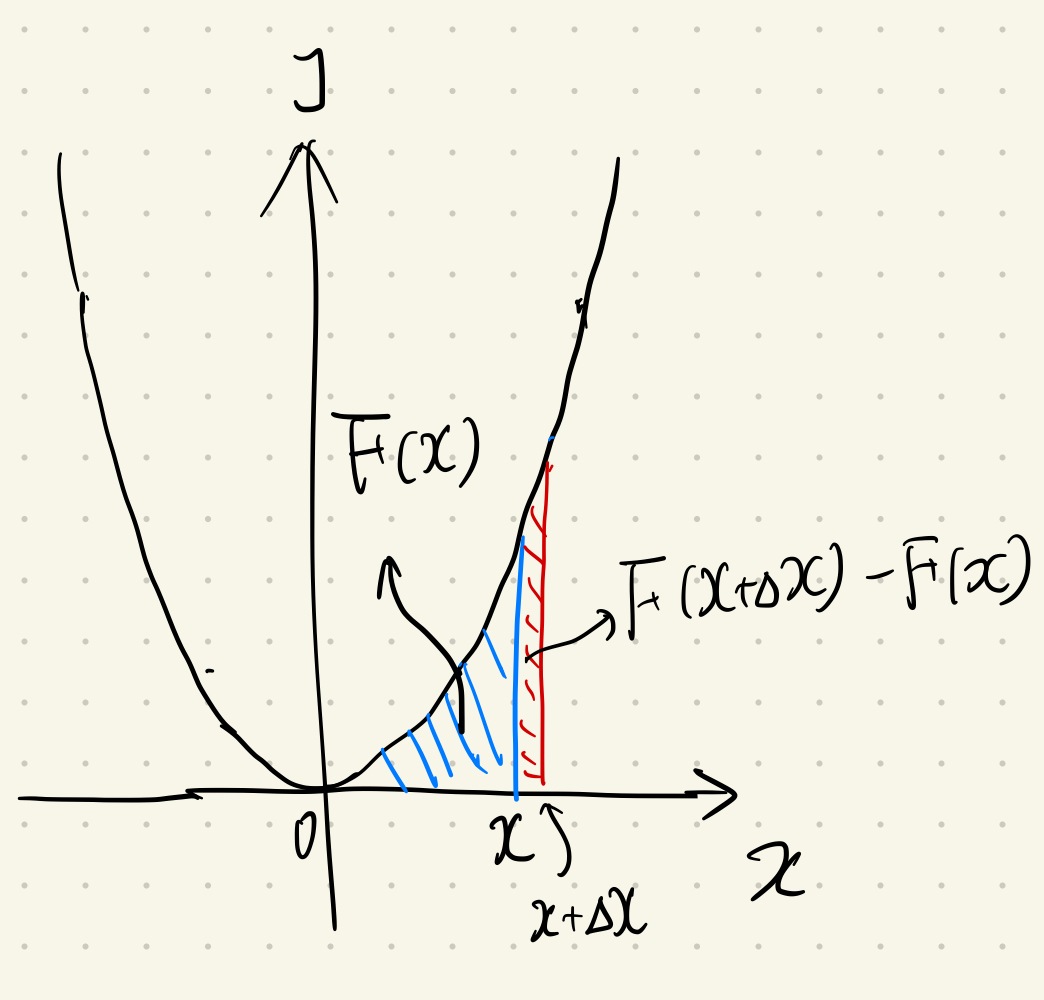 F(x)
F(x+Δx) - F(x)
0
x
x
x+Δx